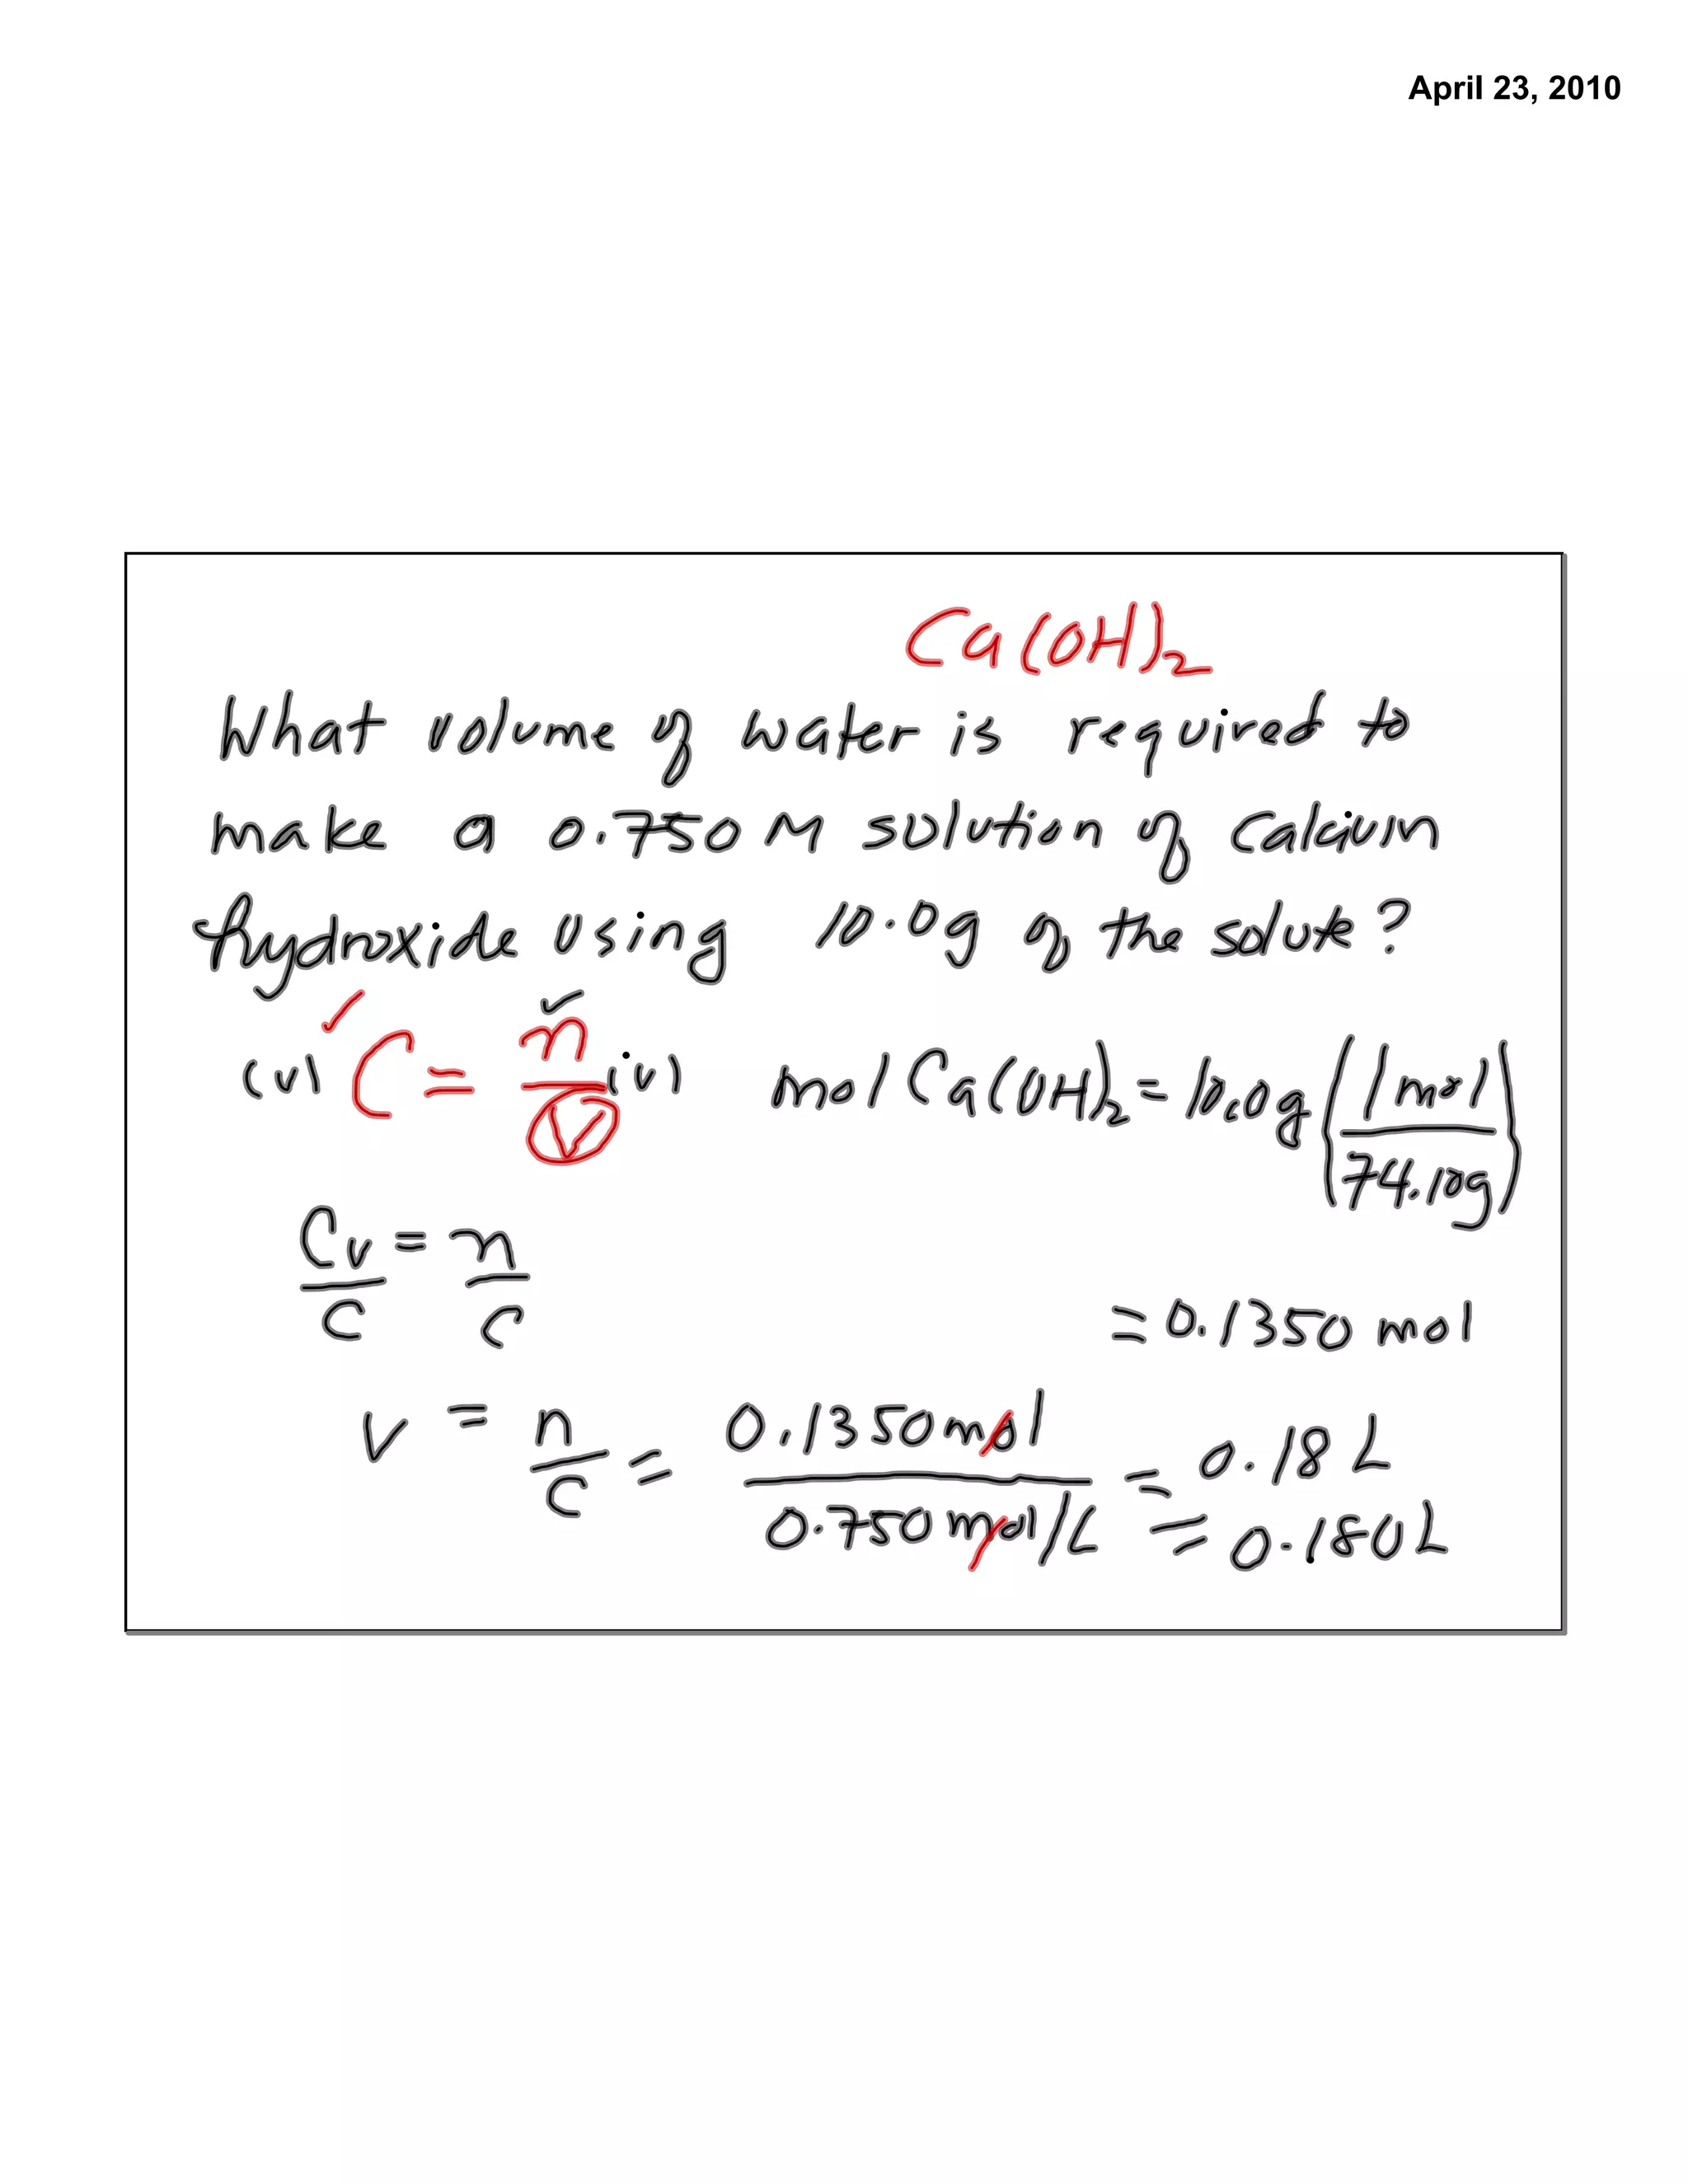 April 23, 2010
Ca(OH)₂
What volume of water is required to
make a 0.750 M solution of calcium
hydroxide using 10.0g of the solute?
(v) ✓ C = n/V (v) ✓ mol Ca(OH)₂ = 10.0g (1 mol / 74.10g)
Cv/C = n/C
= 0.1350 mol
V = n/C = 0.1350 mol / 0.750 mol/L = 0.18 L
= 0.180 L